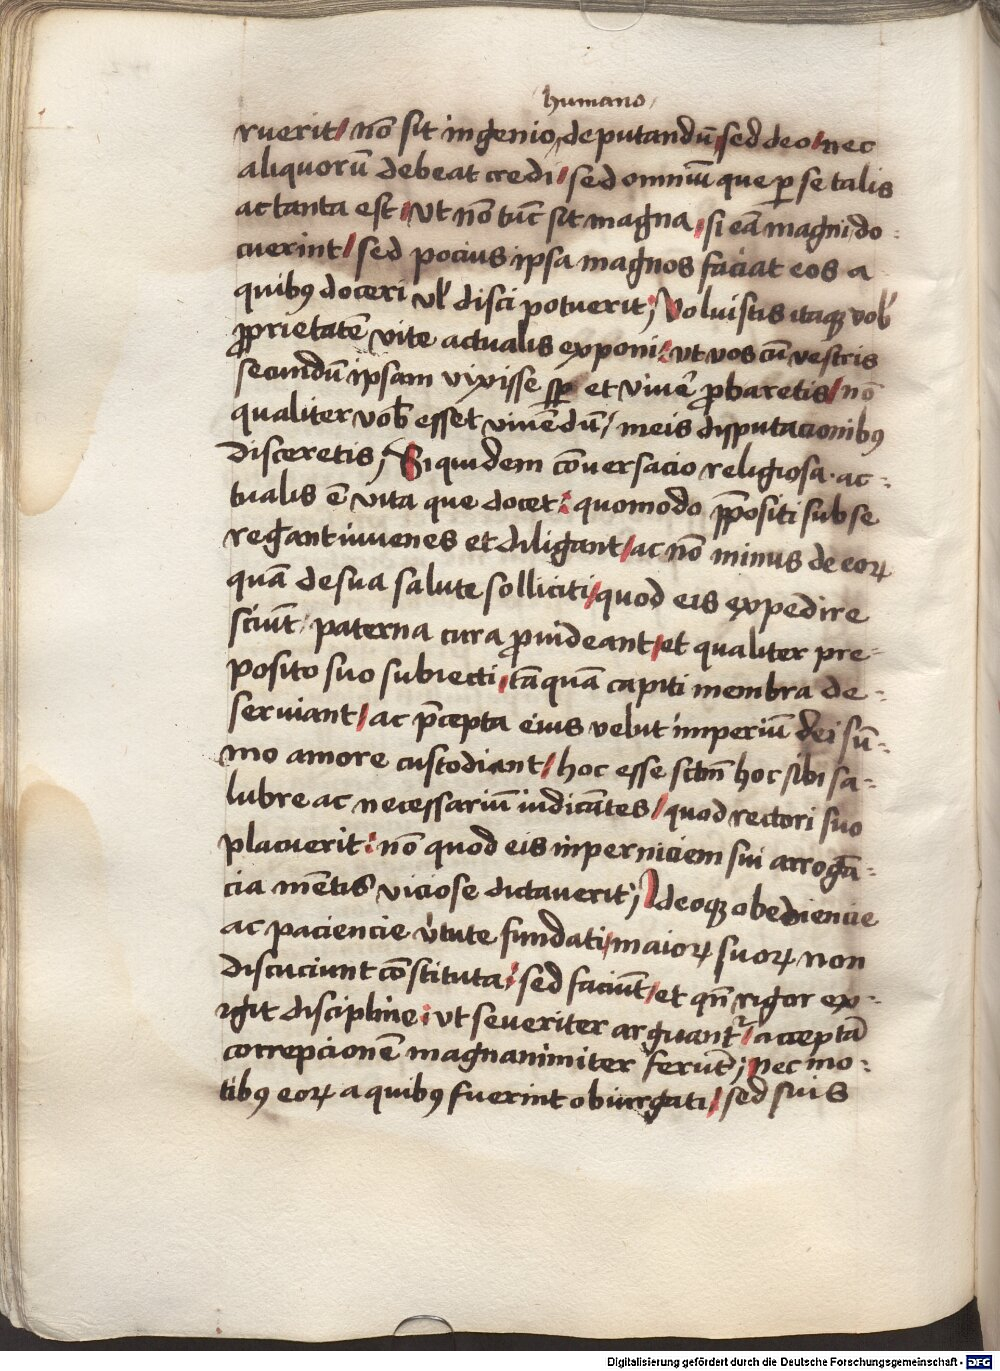 humano
ruerit/ nō sit ingenio deputandū/ sed deo/ nec
aliquorū debeat credi/ sed omniū que ꝑ se talis
ac tanta est/ vt nō tūc sit magna/ si eā magni do-
cuerint/ sed pocius ipsa magnos faciat eos a
quibꝯ doceri vl̛ disci potuerit; Voluistis itaqꝫ vob̛
ꝓprietatē vite actualis exponi: vt vos cū vestris
secundū ipsam vixisse sꝑ et viuer̛ ꝓbaretis/ nō
qualiter vob̛ esset viuēdū/ meis disputacionibꝯ
disceretis; Siquidem cōuersacio religiosa. ac-
tualis ē vita que docet: quomodo p̄positi sub se
regant iuuenes et diligant/ ac nō minus de eoꝝ
quā de sua salute solliciti/ quod eis expedire
sciūt/ paterna cura ꝓuideant/ et qualiter pre-
posito suo subiecti/ tāquā capiti membra de-
seruiant/ ac p̄cepta eius velut imperiū dei sū-
mo amore custodiant/ hoc esse sc̄tm̄ hoc sibi sa-
lubre ac necessariū iudicātes/ quod rectori suo
placuerit: nō quod eis in perniciem sui arrogā-
cia mētis viciose dictauerit; Ideoqꝫ obediencie
ac paciencie v̛tute fundati/ maioꝝ suoꝝ non
discuciunt cōstituta: sed faciūt/ et qn̄ rigor ex-
igit discipline: vt seueriter arguant᷑/ acceptā
correpcionē magnanimiter ferūt; nec mo-
tibꝯ eoꝝ a quibꝯ fuerint obiurgati/ sed suis
Digitalisierung gefördert durch die Deutsche Forschungsgemeinschaft - DFG